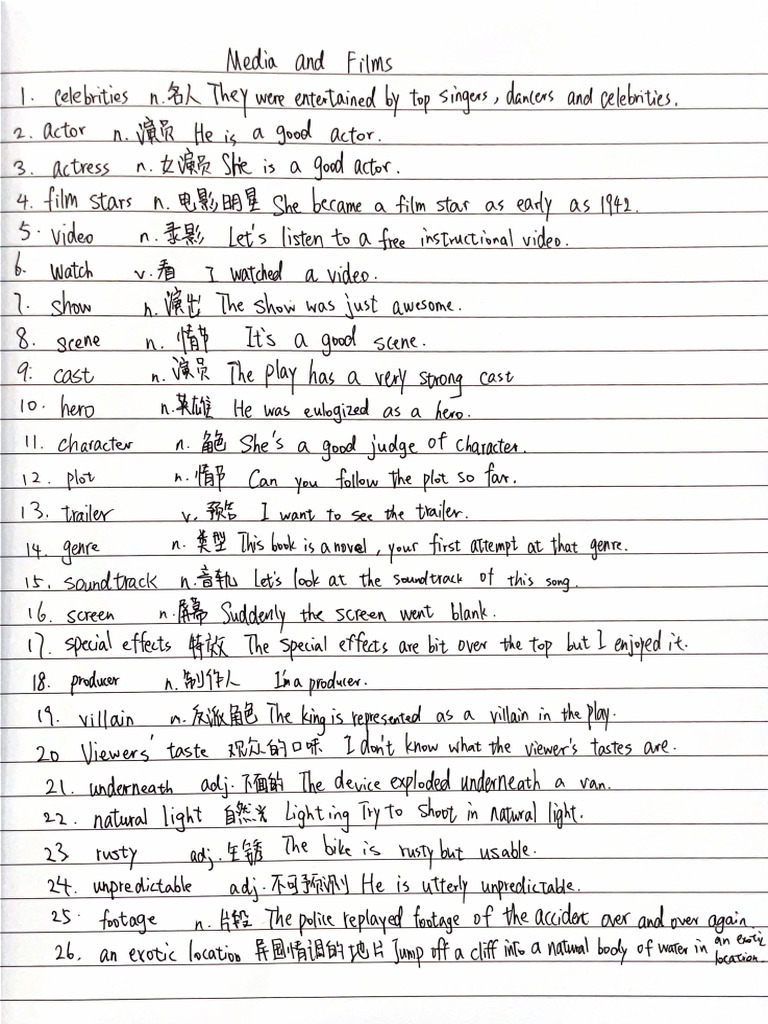 Media and Films
1. celebrities n.名人 They were entertained by top singers, dancers and celebrities.
2. actor n. 演员 He is a good actor.
3. actress n. 女演员 She is a good actor.
4. film stars n. 电影明星 She became a film star as early as 1942.
5. video n. 录影 Let's listen to a free instructional video.
6. watch v. 看 I watched a video.
7. show n. 演出 The show was just awesome.
8. scene n. 情节 It's a good scene.
9. cast n. 演员 The play has a very strong cast
10. hero n.英雄 He was eulogized as a hero.
11. character n. 角色 She's a good judge of character.
12. plot n. 情节 Can you follow the plot so far.
13. trailer v. 预告 I want to see the trailer.
14. genre n. 类型 This book is a novel, your first attempt at that genre.
15. soundtrack n.音轨 Let's look at the soundtrack of this song.
16. screen n.屏幕 Suddenly the screen went blank.
17. special effects 特效 The special effects are bit over the top but I enjoyed it.
18. producer n.制作人 I'm a producer.
19. villain n. 反派角色 The king is represented as a villain in the play.
20 Viewers' taste 观众的口味 I don't know what the viewer's tastes are.
21. underneath adj.下面的 The device exploded underneath a van.
22. natural light 自然光 Lighting Try to shoot in natural light.
23 rusty adj.生锈 The bike is rusty but usable.
24. unpredictable adj.不可预测 He is utterly unpredictable.
25. footage n.片段 The police replayed footage of the accident over and over again.
26. an exotic location 异国情调的地片 Jump off a cliff into a natural body of water in an exotic location.